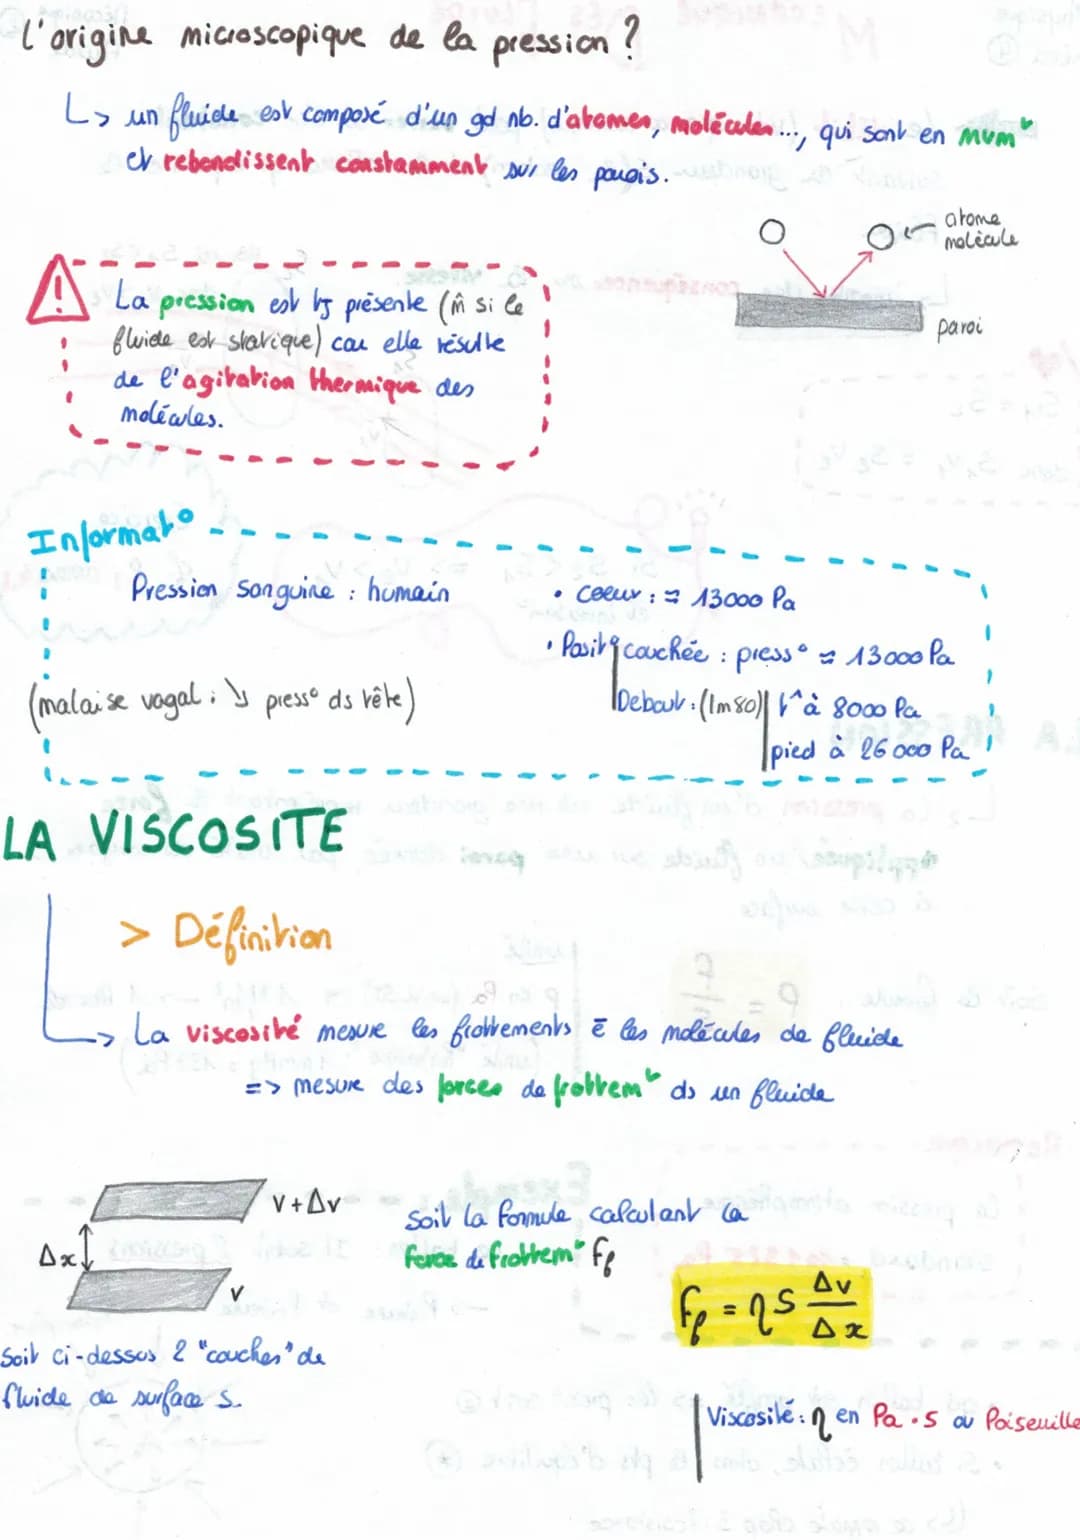 L'origine microscopique de la pression ?
↳ un fluide est composé d'un gd nb. d'atomes, molécules..., qui sont en mvmt
et rebondissent constamment sur les parois.
atome
molécule
paroi
! La pression est tjs présente (m̂ si le
fluide est statique) car elle résulte
de l'agitation thermique des
molécules.
Informat°
Pression sanguine : humain
• coeur : ≈ 13000 Pa
• Posit° couchée : press° ≈ 13000 Pa
(malaise vagal : ↘ press° ds tête)
Debout : (1m80) t^ à 8000 Pa
pied à 26000 Pa
LA VISCOSITE
> Définition
↳ La viscosité mesure les frottements ē les molécules de fluide
=> mesure des forces de frottemt ds un fluide
v+Δv
Δx
v
Soit la formule calculant la
force de frottemt Ff
Ff = η S Δv/Δx
Soit ci-dessus 2 "couches" de
fluide de surface S.
Viscosité : η en Pa·s ou Poiseuille